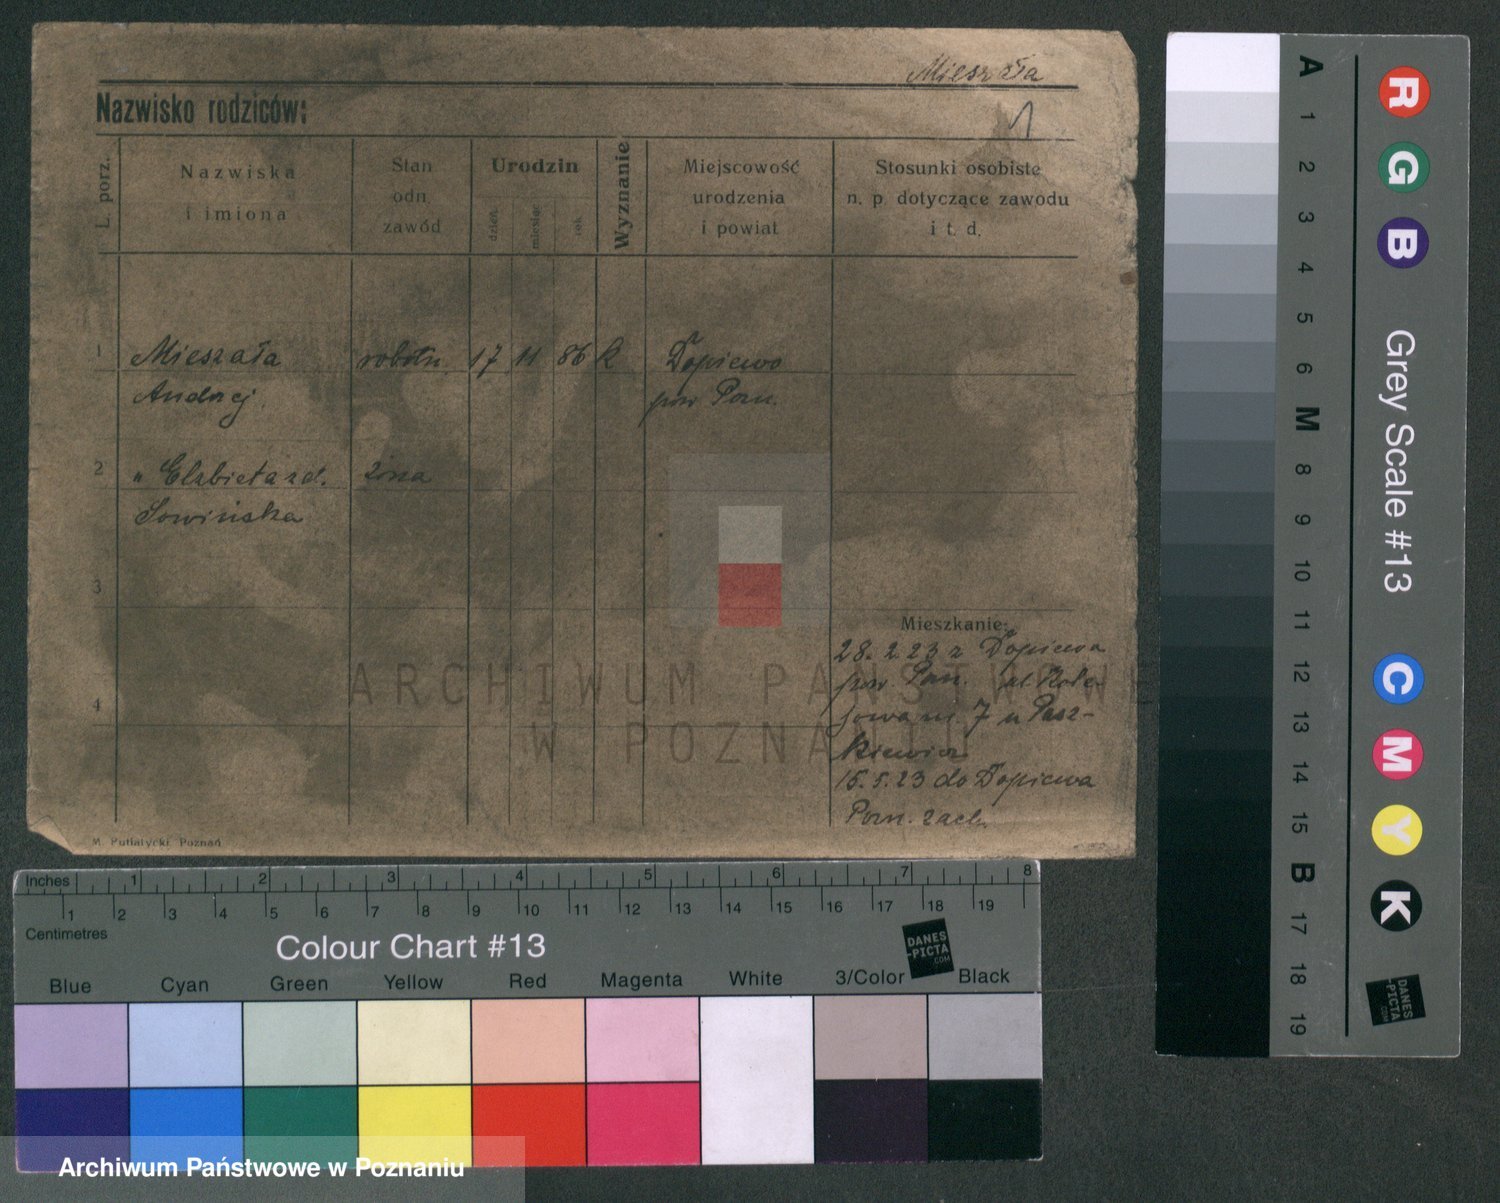 Mieszała
Nazwisko rodziców:
1
L. porz.
Nazwiska
i imiona
Stan
odn.
zawód
Urodzin
dzień
miesiąc
rok
Wyznanie
Miejscowość
urodzenia
i powiat
Stosunki osobiste
n. p. dotyczące zawodu
i t. d.
1 Mieszała robotn. 17 11 86 k Dopiewo
Andrzej pow Pozn.
2 " Elżbieta zd. żona
Sowińska
3
Mieszkanie:
28. 2 23 z Dopiewa
pow. Pozn. ul Kole-
jowa nr. 7 u Pasz-
kiewicz
15. 5. 23 do Dopiewa
Pozn. zach.
4
M. Putiatycki Poznań
ARCHIWUM PAŃSTWOWE
W POZNANIU
Inches 1 2 3 4 5 6 7 8
1 2 3 4 5 6 7 8 9 10 11 12 13 14 15 16 17 18 19
Centimetres
Colour Chart #13
DANES
-PICTA
.COM
Blue Cyan Green Yellow Red Magenta White 3/Color Black
A 1 2 3 4 5 6 M 8 9 10 11 12 13 14 15 B 17 18 19
R G B
Grey Scale #13
C M Y K
DANES
-PICTA
.COM
Archiwum Państwowe w Poznaniu